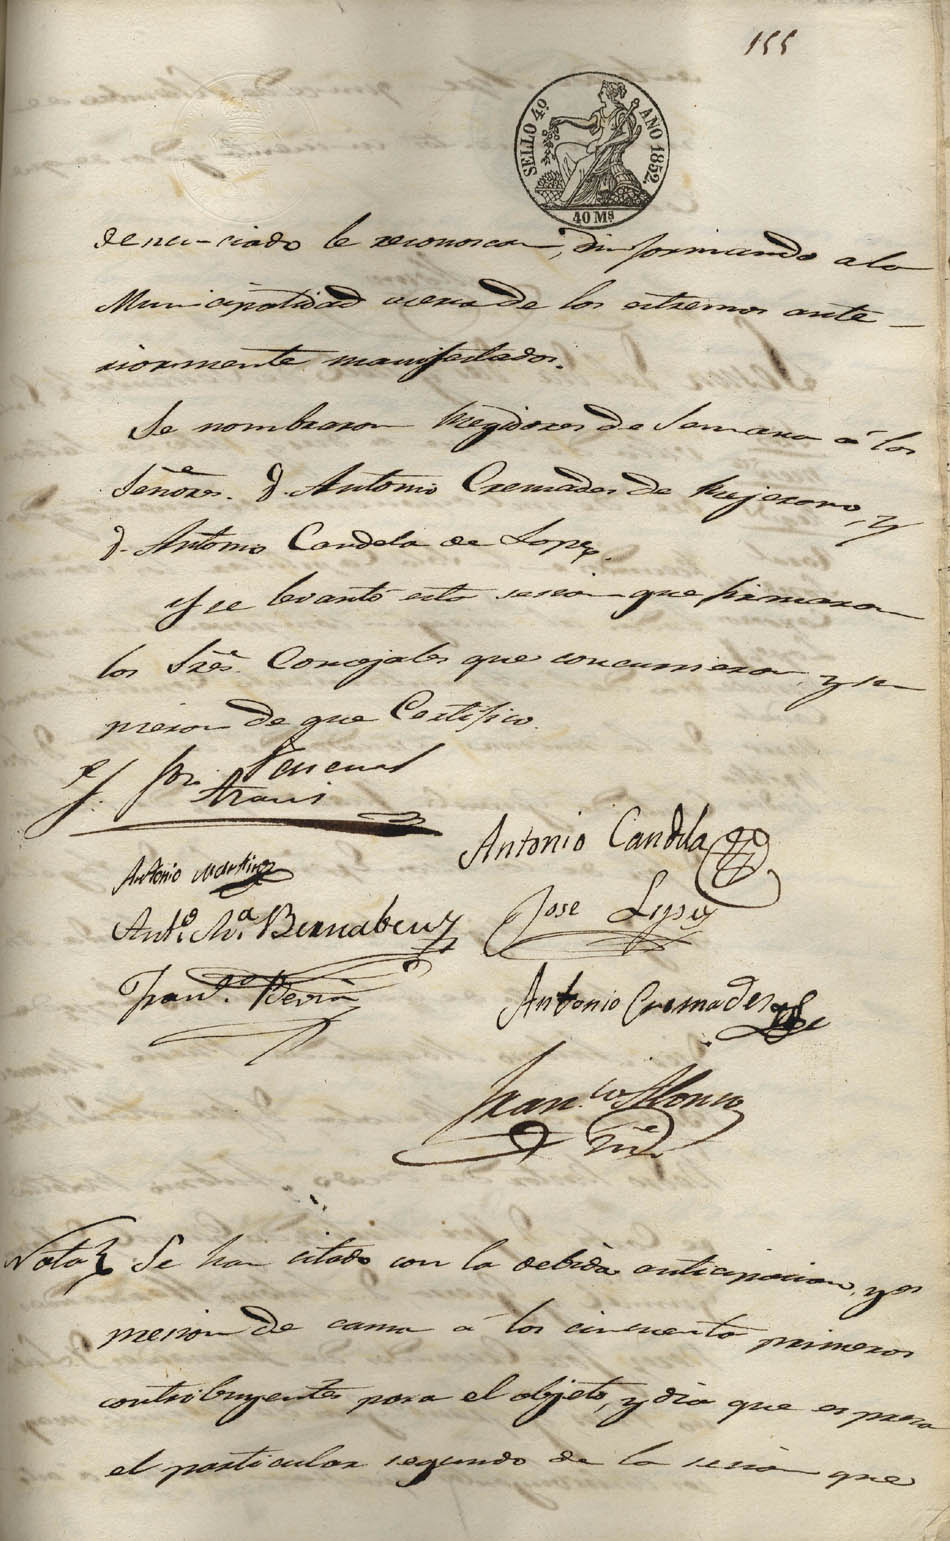 155
SELLO 4º. AÑO 1852.
40 Ms
denunciado le reconoscan, informando a la
Municipalidad acerca de los estremos ante-
riormente manifestados.
Se nombraron Regidores de Semana á los
Señores. D. Antonio Cremades de y
D. Antonio Candela de Lopez.
Y se levantó esta sesion que firmaron
los Sres. Concejales que concurrieron, y
de que Certifico.
Pascual
Antonio Candela
Antonio Martinez
Antº. Mª. Bernabeu
Jose Lopez
Franco.
Antonio Cremades
Franco. Alonso
Nota Se han citado con la debida anticipacion, y es
presion de causa á los cincuenta primeros
contribuyentes para el objeto, y dia que espresa
el particular segundo de la sesion que